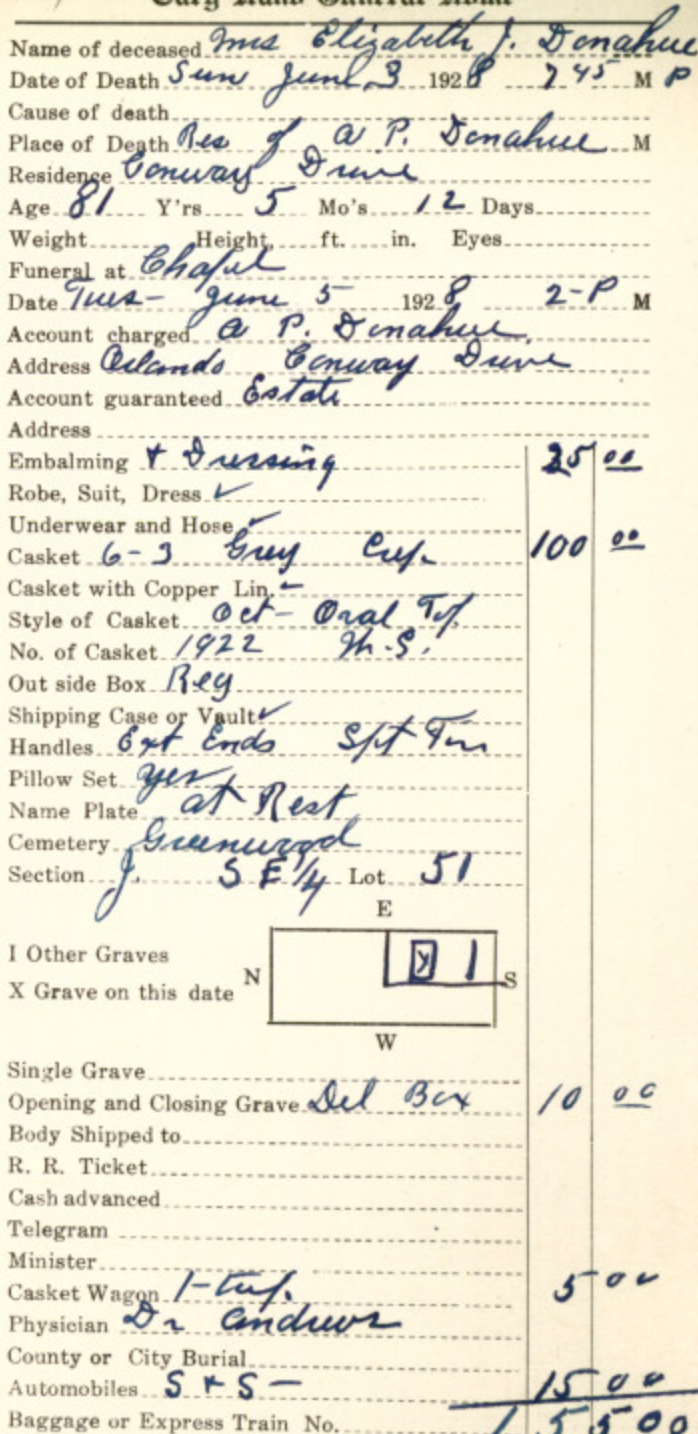 Cary Hand Funeral Home
Name of deceased Mrs Elizabeth J. Donahue
Date of Death Sun June 3 1928 7 45 M P
Cause of death
Place of Death Res of A P. Donahue M
Residence Conway Drive
Age 81 Y'rs 5 Mo's 12 Days
Weight Height ft. in. Eyes
Funeral at Chapel
Date Tues- June 5 1928 2-P M
Account charged A P. Donahue
Address Orlando Conway Drive
Account guaranteed Estate
Address
Embalming + Dressing 25 00
Robe, Suit, Dress ✓
Underwear and Hose ✓
Casket 6-3 Grey Crep. 100 00
Casket with Copper Lin. -
Style of Casket Oct- Oval Top
No. of Casket 1922 M.S.
Out side Box Reg
Shipping Case or Vault ✓
Handles Ext Ends
Pillow Set yes
Name Plate at Rest
Cemetery Greenwood
Section J. S E 1/4 Lot 51
E
I Other Graves
N X 1 S
X Grave on this date
W
Single Grave
Opening and Closing Grave Del Box 10 00
Body Shipped to
R. R. Ticket
Cash advanced
Telegram
Minister
Casket Wagon 1-trip. 5 00
Physician Dr Andrews
County or City Burial
Automobiles S + S - 15 00
Baggage or Express Train No. 155 00